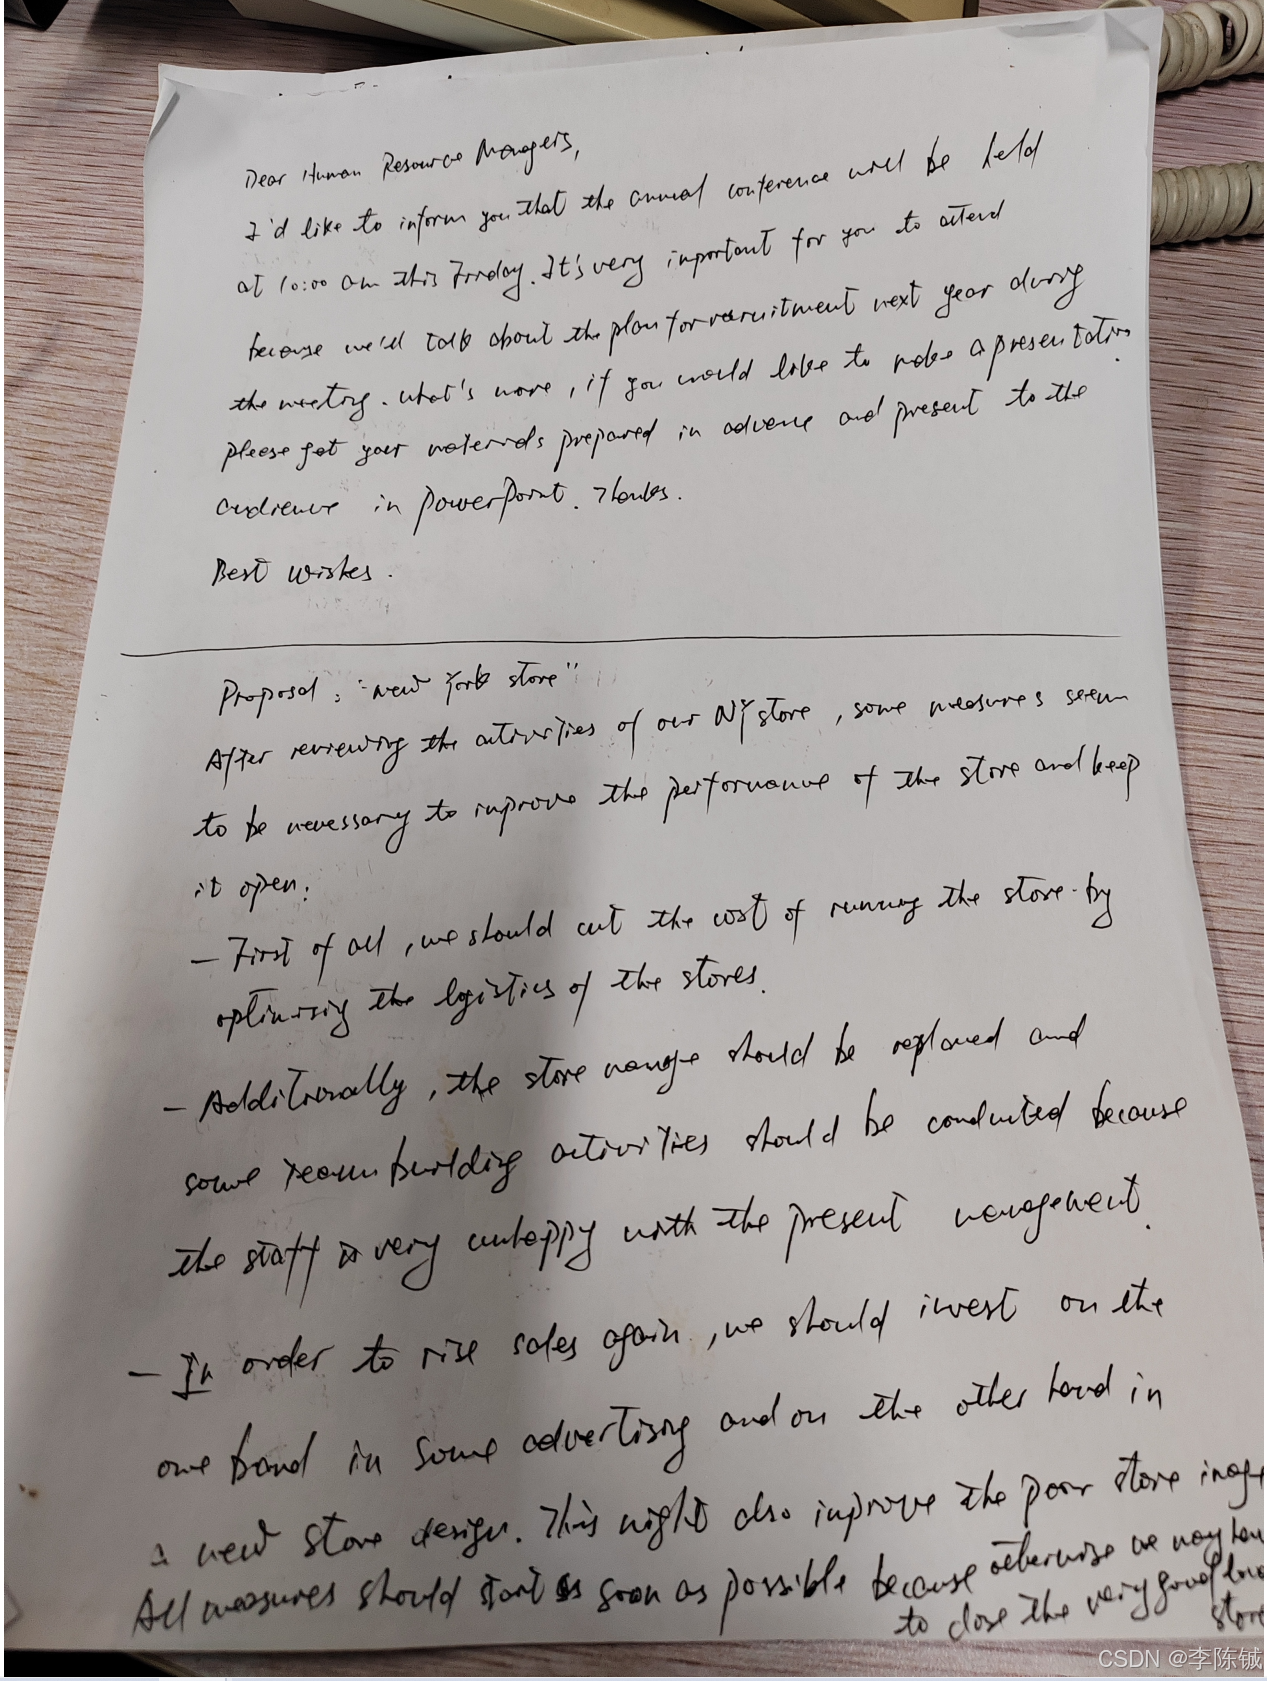 Dear Human Resource Managers,
I'd like to inform you that the annual conference will be held
at 10:00 am this Friday. It's very important for you to attend
because we'll talk about the plan for recruitment next year during
the meeting. What's more, if you would like to make a presentation
please get your materials prepared in advance and present to the
audience in PowerPoint. Thanks.
Best wishes.
Proposal: "New York store"
After reviewing the activities of our NY store, some measures seem
to be necessary to improve the performance of the store and keep
it open:
- First of all, we should cut the cost of running the store by
optimising the logistics of the stores.
- Additionally, the store manage should be replaced and
some teambuilding activities should be conducted because
the staff is very unhappy with the present management.
- In order to rise sales again, we should invest on the
one hand in some advertising and on the other hand in
a new store design. This might also improve the poor store image
All measures should start as soon as possible because otherwise we may have
to close the very good
store
CSDN @李陈铖